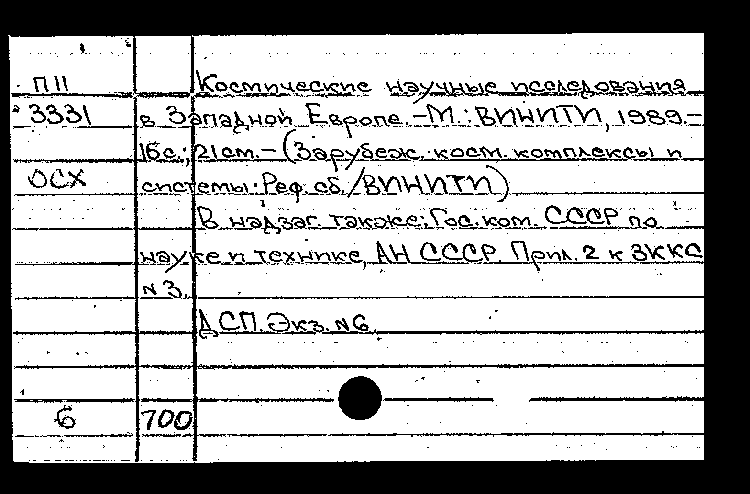 П11 Космические научные исследования
3331 в Западной Европе.-М.:ВИНИТИ, 1989.-
16с.; 21см.-(Зарубеж. косм. комплексы и
ОСХ системы: Реф. сб./ВИНИТИ)
В надзаг. также: Гос. ком. СССР по
науке и технике, АН СССР. Прил. 2 к ЗККС
N 3.
ДСП. Экз. N6.
6 700